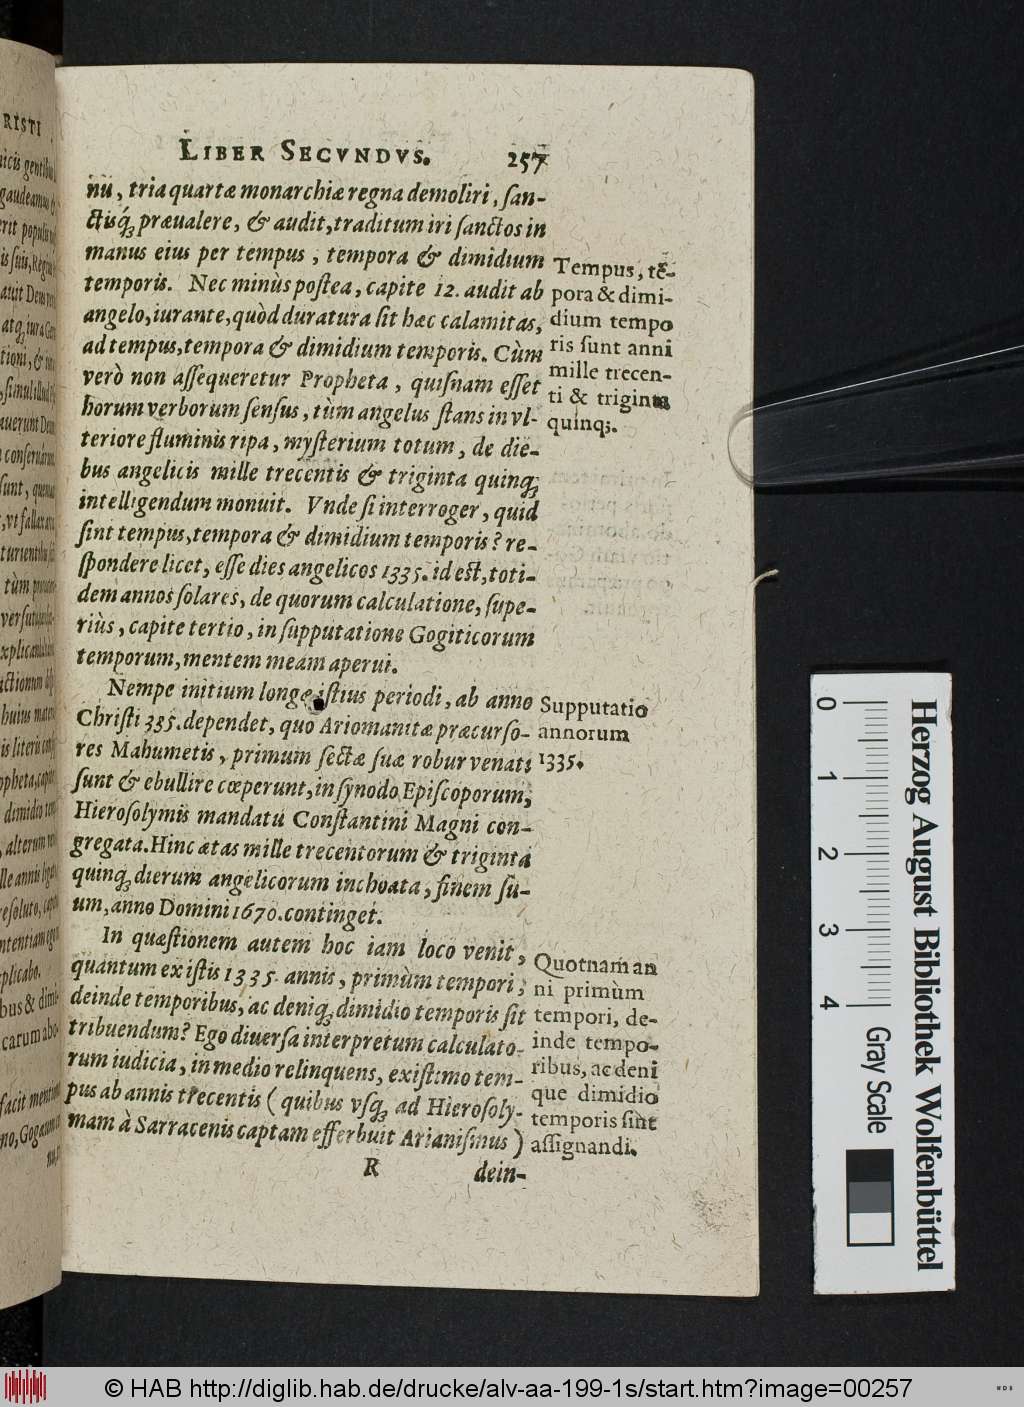 LIBER SECVNDVS. 257
nū, tria quartæ monarchiæ regna demoliri, ſan-
ctisq́ꝫ præualere, & audit, traditum iri ſanctos in
manus eius per tempus, tempora & dimidium
temporis. Nec minùs poſtea, capite 12. audit ab
angelo, iurante, quòd duratura ſit hæc calamitas,
ad tempus, tempora & dimidium temporis. Cùm
verò non aſſequeretur Propheta, quiſnam eſſet
horum verborum ſenſus, tùm angelus ſtans in vl-
teriore fluminis ripa, myſterium totum, de die-
bus angelicis mille trecentis & triginta quinqꝫ
intelligendum monuit. Vnde ſi interroger, quid
ſint tempus, tempora & dimidium temporis? re-
ſpondere licet, eſſe dies angelicos 1335. id eſt, toti-
dem annos ſolares, de quorum calculatione, ſupe-
riùs, capite tertio, in ſupputatione Gogiticorum
temporum, mentem meam aperui.
Tempus, tē-
pora & dimi-
dium tempo
ris ſunt anni
mille trecen-
ti & triginta
quinq;.
Nempe initium longe iſtius periodi, ab anno
Chriſti 335. dependet, quo Ariomanitæ præcurſo-
res Mahumetis, primum ſectæ ſuæ robur venati
ſunt & ebullire cœperunt, in ſynodo Epiſcoporum,
Hieroſolymis mandatu Conſtantini Magni con-
gregata. Hinc ætas mille trecentorum & triginta
quinqꝫ dierum angelicorum inchoata, finem ſu-
um, anno Domini 1670. continget.
Supputatio
annorum
1335.
In quæſtionem autem hoc iam loco venit,
quantum ex iſtis 1335. annis, primùm tempori,
deinde temporibus, ac deniqꝫ dimidio temporis ſit
tribuendum? Ego diuerſa interpretum calculato-
rum iudicia, in medio relinquens, exiſtimo tem-
pus ab annis trecentis ( quibus vſqꝫ ad Hieroſoly-
mam à Sarracenis captam efferbuit Arianiſmus )
Quotnam an
ni primùm
tempori, de-
inde tempo-
ribus, ac deni
que dimidio
temporis ſint
aſſignandi.
R dein-
RISTI
Herzog August Bibliothek Wolfenbüttel
Gray Scale
0
1
2
3
4
© HAB http://diglib.hab.de/drucke/alv-aa-199-1s/start.htm?image=00257